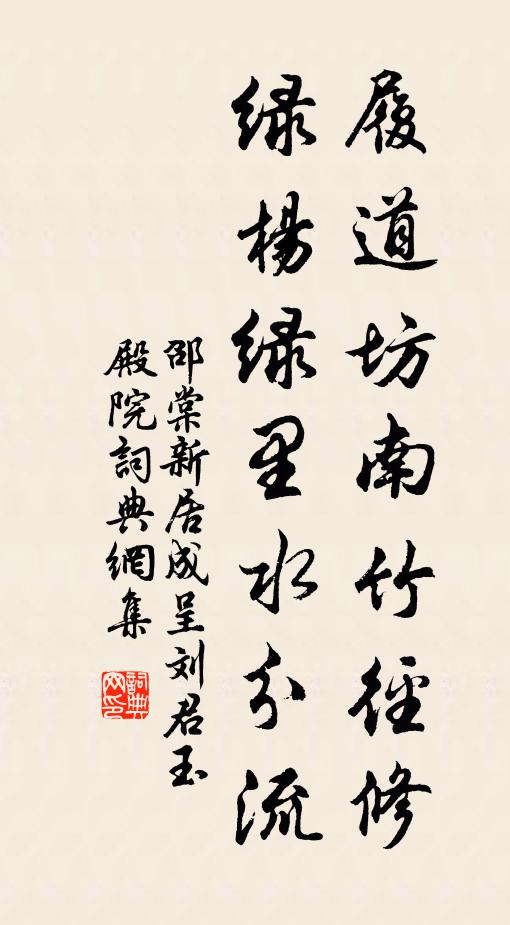 履道坊南竹徑修
绿楊绿里水分流
邵棠新居成呈刘君玉
殿院詞典網集
詞典网印